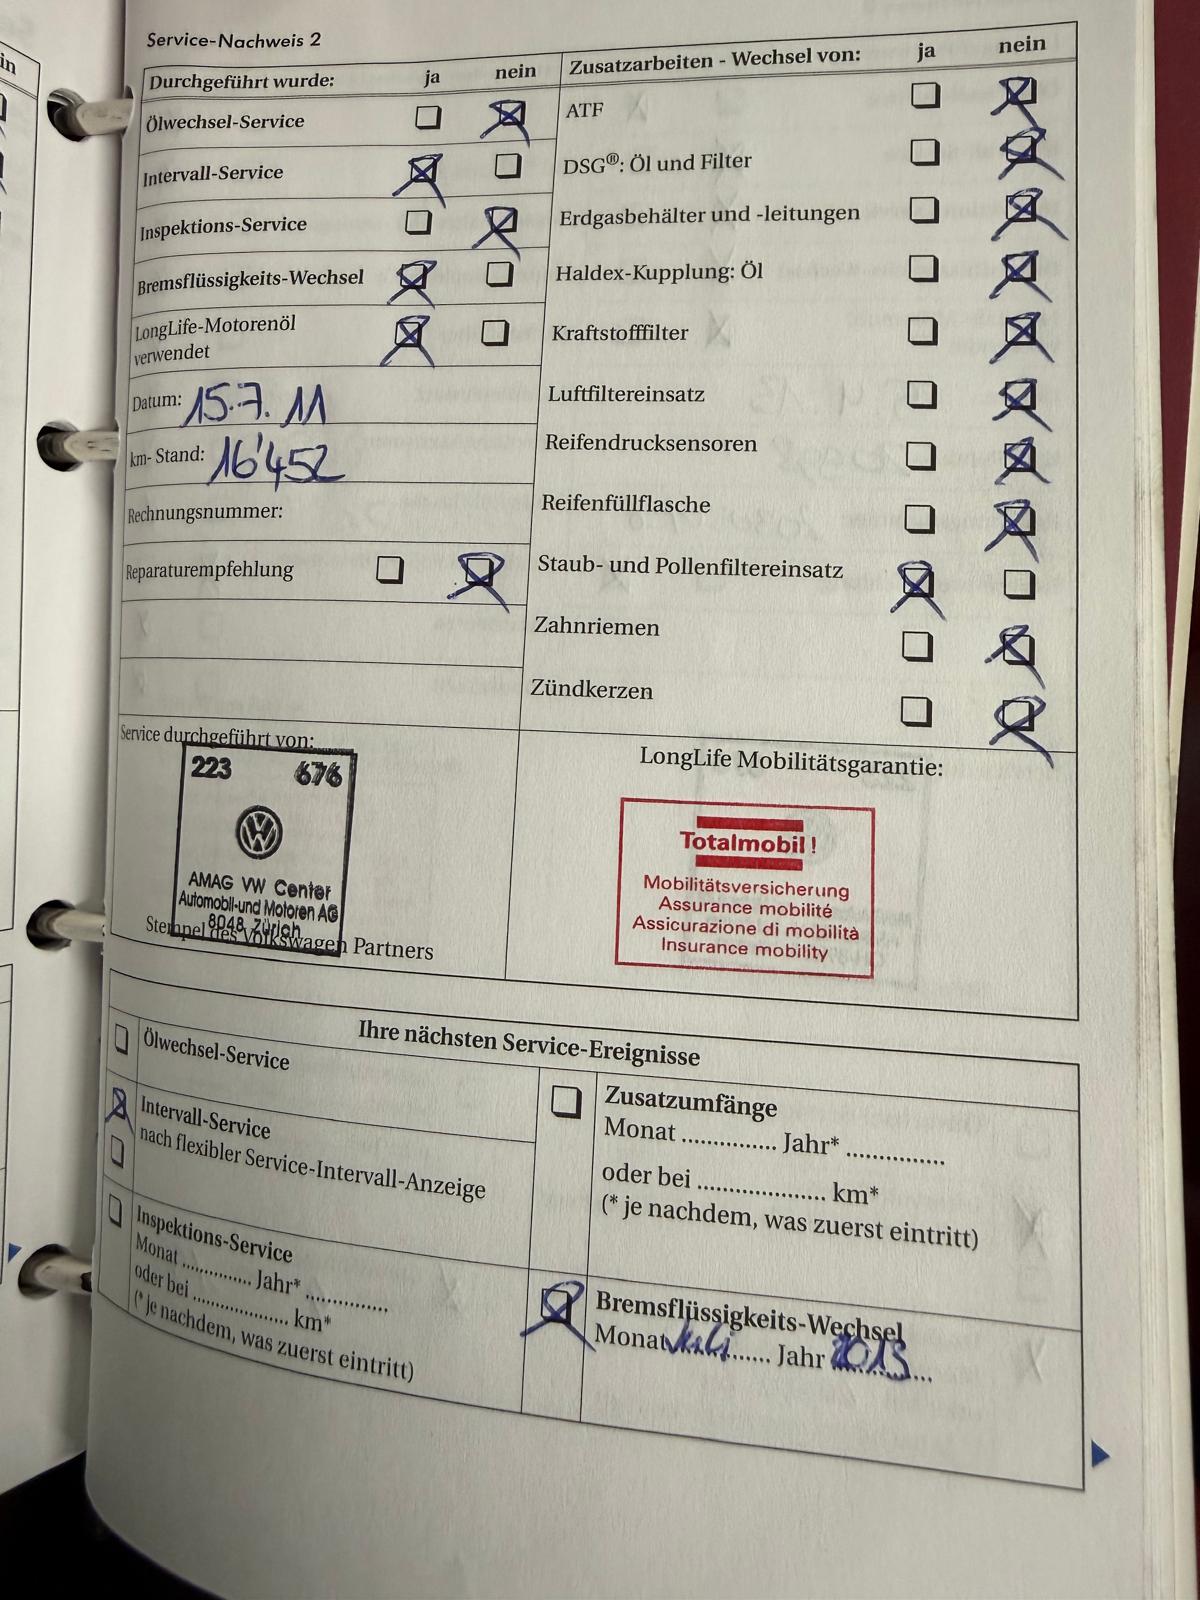 in
Service-Nachweis 2
Durchgeführt wurde: ja nein
Ölwechsel-Service
Intervall-Service
Inspektions-Service
Bremsflüssigkeits-Wechsel
LongLife-Motorenöl
verwendet
Datum: 15.7.11
km- Stand: 16'452
Rechnungsnummer:
Reparaturempfehlung
Zusatzarbeiten - Wechsel von: ja nein
ATF
DSG®: Öl und Filter
Erdgasbehälter und -leitungen
Haldex-Kupplung: Öl
Kraftstofffilter
Luftfiltereinsatz
Reifendrucksensoren
Reifenfüllflasche
Staub- und Pollenfiltereinsatz
Zahnriemen
Zündkerzen
Service durchgeführt von:
223 676
AMAG VW Center
Automobil-und Motoren AG
8048 Zürich
Stempel des Volkswagen Partners
LongLife Mobilitätsgarantie:
Totalmobil!
Mobilitätsversicherung
Assurance mobilité
Assicurazione di mobilità
Insurance mobility
Ihre nächsten Service-Ereignisse
Ölwechsel-Service
Intervall-Service
nach flexibler Service-Intervall-Anzeige
Inspektions-Service
Monat ............... Jahr* ...............
oder bei ..................... km*
(* je nachdem, was zuerst eintritt)
Zusatzumfänge
Monat ............... Jahr* ...............
oder bei ..................... km*
(* je nachdem, was zuerst eintritt)
Bremsflüssigkeits-Wechsel
Monat Juli ....... Jahr 2013 ...